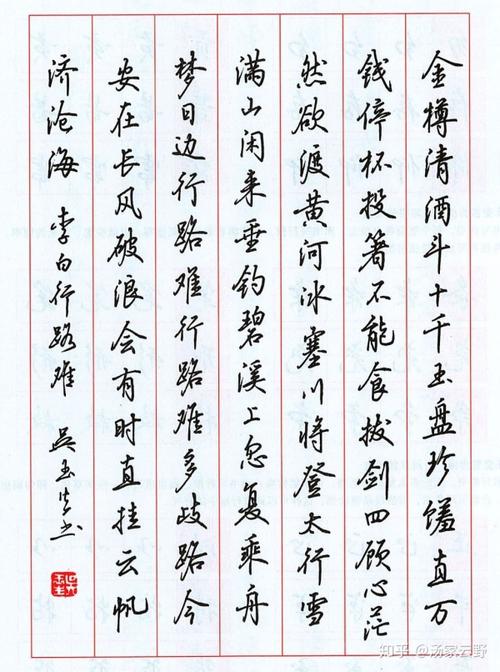 金樽清酒斗十千玉盘珍馐直万
钱停杯投箸不能食拔剑四顾心茫
然欲渡黄河冰塞川将登太行雪
满山闲来垂钓碧溪上忽复乘舟
梦日边行路难行路难多歧路今
安在长风破浪会有时直挂云帆
济沧海 李白行路难 吴玉生书
知乎 @汤家云野